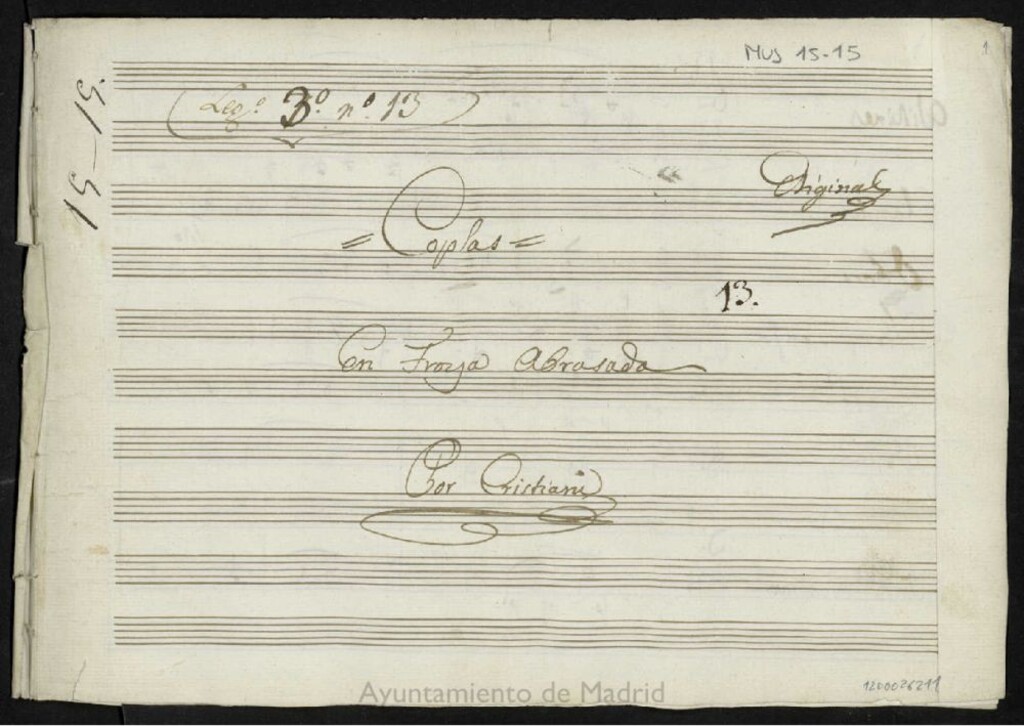 Mus 15-15
1
15-15.
(Leg.º 3.º n.º 13)
Original
= Coplas =
13.
En Troya Abrasada
Por Cristiani
Ayuntamiento de Madrid
1200026211